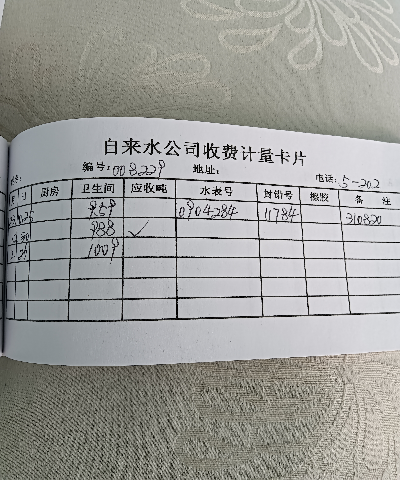 自来水公司收费计量卡片
编号:008229 地址: 电话:5-202
厨房 卫生间 应收吨 水表号 封铅号 换胶 备 注
959 0904284 11784 310820
988 ✓
1009